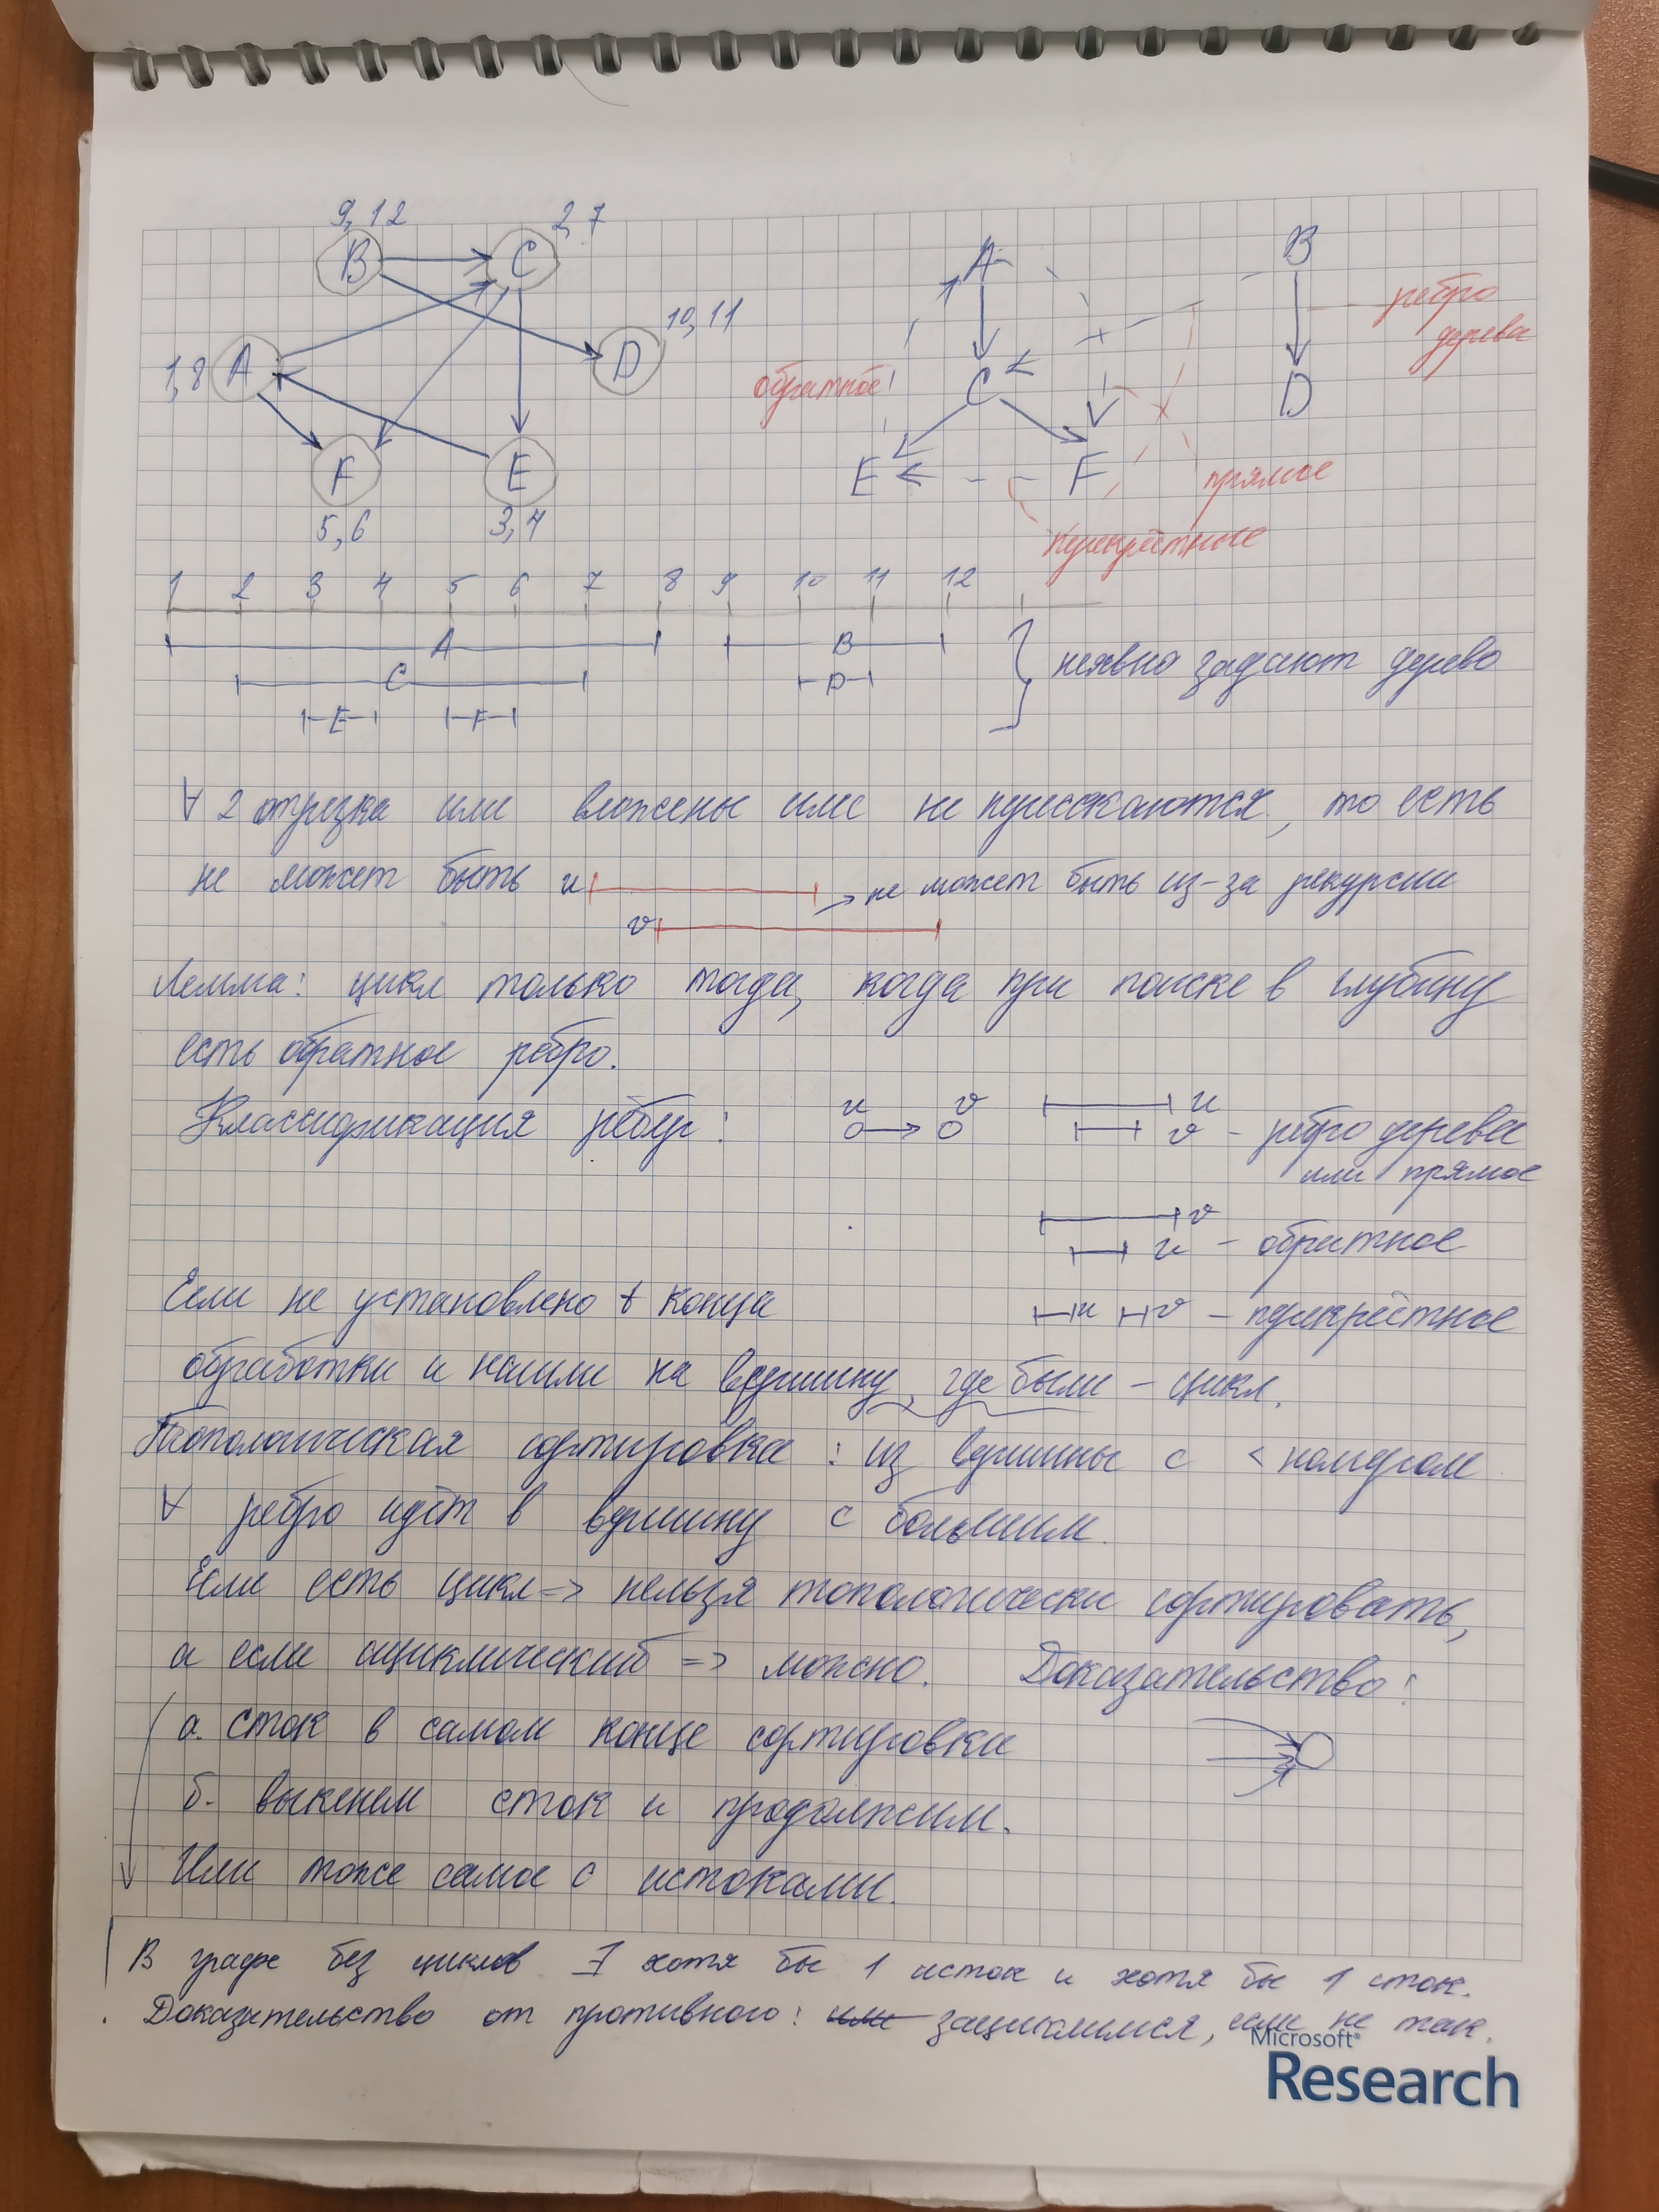 9, 12
2, 7
B C
A B
10, 11
ребро
дерева
1, 8 A
D
обратное
C
D
F E
E F
прямое
5, 6
3, 4
перекрёстное
1 2 3 4 5 6 7 8 9 10 11 12
A B
неявно задают дерево
C D
E F
∀ 2 отрезка или вложены или не пересекаются, то есть
не может быть u не может быть из-за рекурсии
v
Лемма: цикл только тогда, когда при поиске в глубину
есть обратное ребро.
Классификация рёбер: u v u
v - ребро дерева
или прямое
v
u - обратное
Если не установлено t конца
u v - перекрёстное
обработки и нашли на вершину, где были - цикл.
Топологическая сортировка: из вершины с < номером
∀ ребро идёт в вершину с большим.
Если есть цикл => нельзя топологически сортировать,
а если ациклический => можно. Доказательство:
а. сток в самом конце сортировки
б. выкенем сток и продолжим.
Или тоже самое с истоками.
В графе без циклов ∃ хотя бы 1 исток и хотя бы 1 сток.
Доказательство от противного: зациклимся, если не так.
Microsoft®
Research